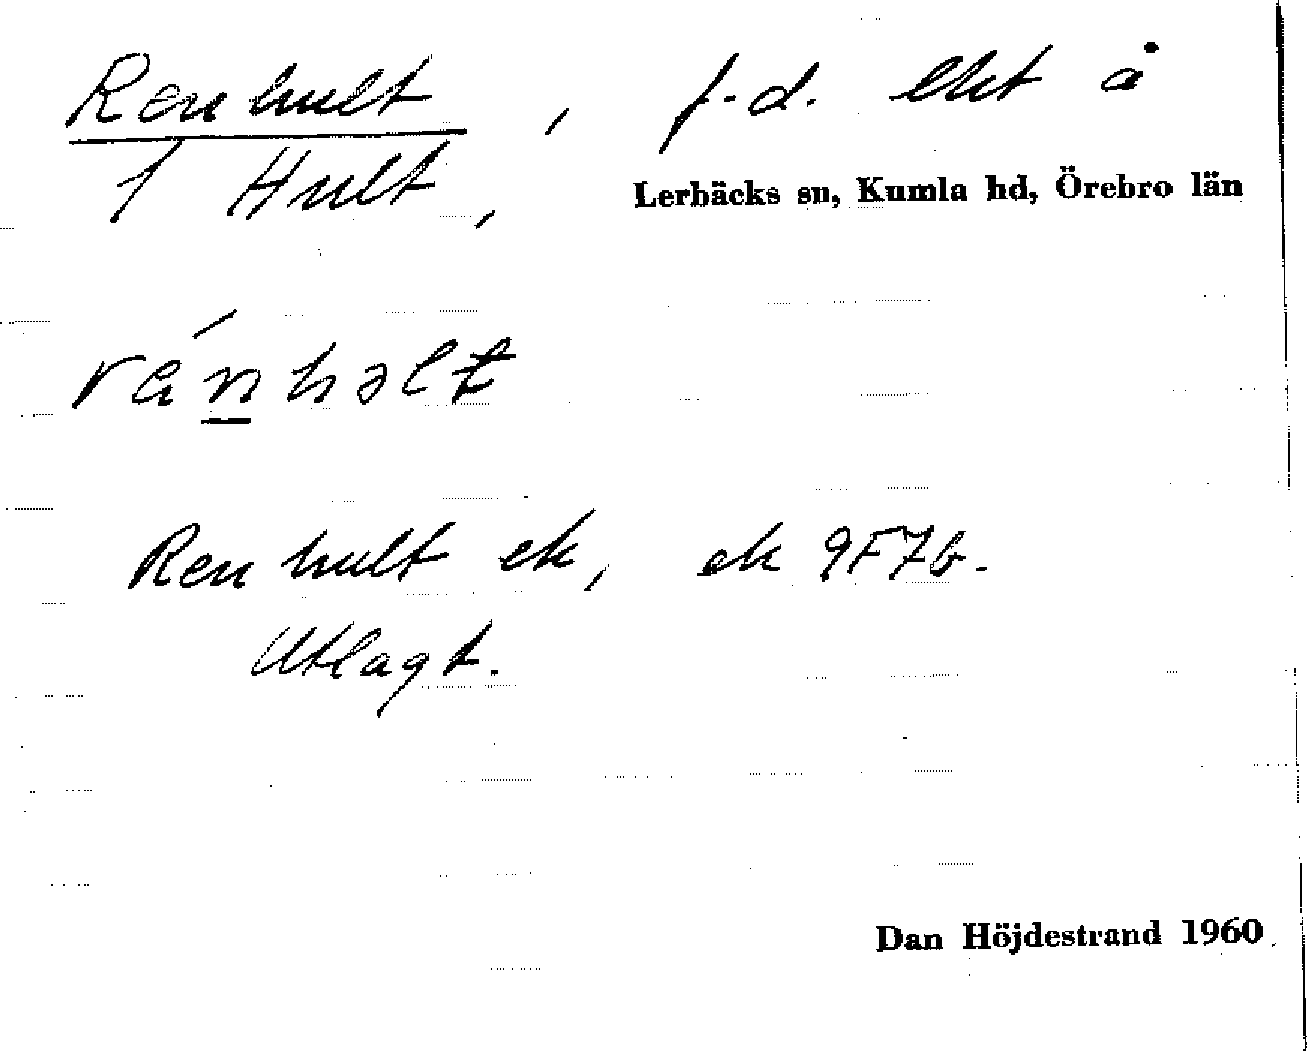 Renhult, f.d. lht å
1 Hult,
Lerbäcks sn, Kumla hd, Örebro län
ránhəlt
Renhult ek, ek 9F7b.
Utlagt.
Dan Höjdestrand 1960